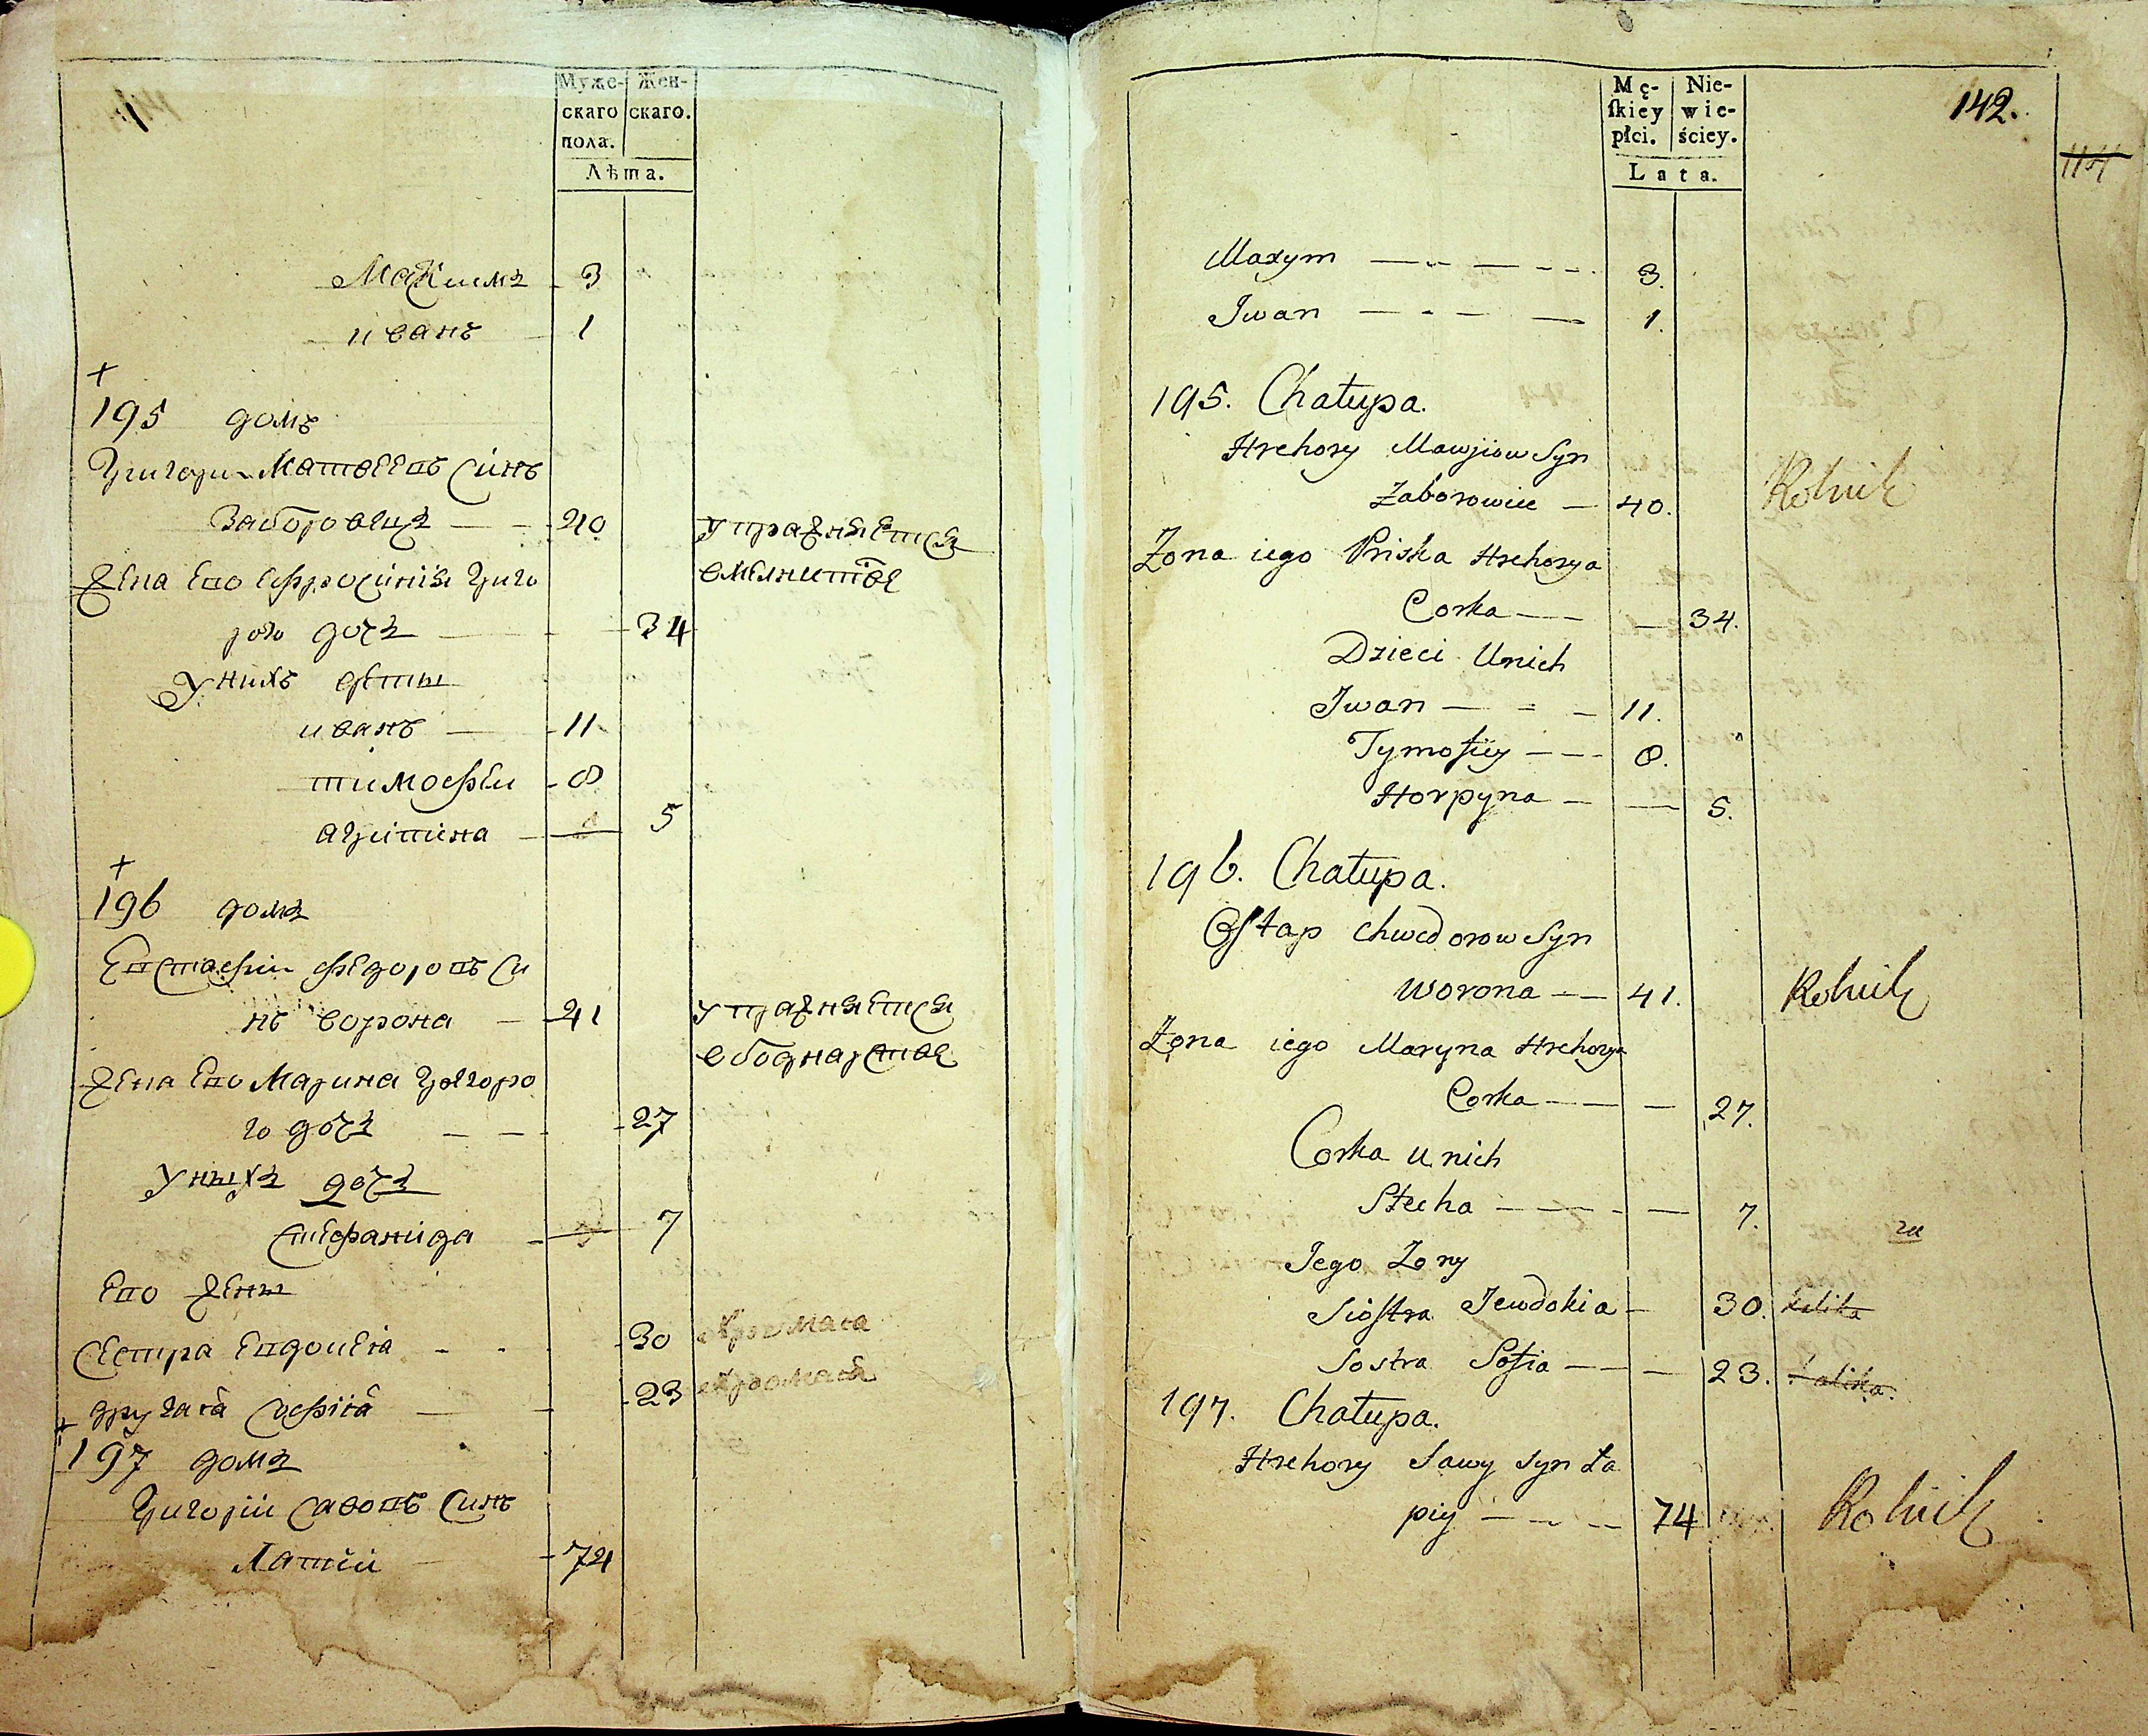 Муже- Жен-
скаго скаго.
пола.
Лѣта.
Максимъ 3
иванъ 1
+
195 домъ
Григори Матвеевъ синъ
Заборовецъ — 40 упражняется
жена ево ефросинія Григо в мелнитвѣ
рого дочъ — 34
У нихъ дети
иванъ — 11
тимофеи - 8
агрипина — 5
+
196 домъ
Евстафіи федоровъ си
нъ ворона — 41 упражняется
в боднарстве
жена ево Марина Григоро
го дочъ — — 27
У ныхъ дочъ
стефанида - 7
ево жены
сестра евдокеіа - - 30
другаіа софііа — 23
+
197 домъ
Григоріи савовъ синъ
Лапіи — 74
142.
114
Mę- Nie-
ſkiey wie-
płci. ściey.
Lata.
Maxym — - — - - 3.
Iwan — - - — 1.
195. Chałupa.
Hrehory Mawjiow Syn
Zaborowiec — 40. Rolnik
Zona iego Priska Hrehorya
Corka — — 34.
Dzieci Unich
Iwan — - — 11.
Tymofiy — - - 8.
Horpyna — — 5.
196. Chałupa.
Oſtap Chwedorow Syn
Worona — — 41. Rolnik
Zona iego Maryna Hrehorya
Corka — — — 27.
Corka u nich
Stecha — — - — 7.
Jego Zony
Sioſtra Jewdokia — 30. kalika
Sostra Sofia — — — 23. kalika.
197. Chałupa.
Hrehory Sawy Syn Ła
piy — - — 74 Rolnik